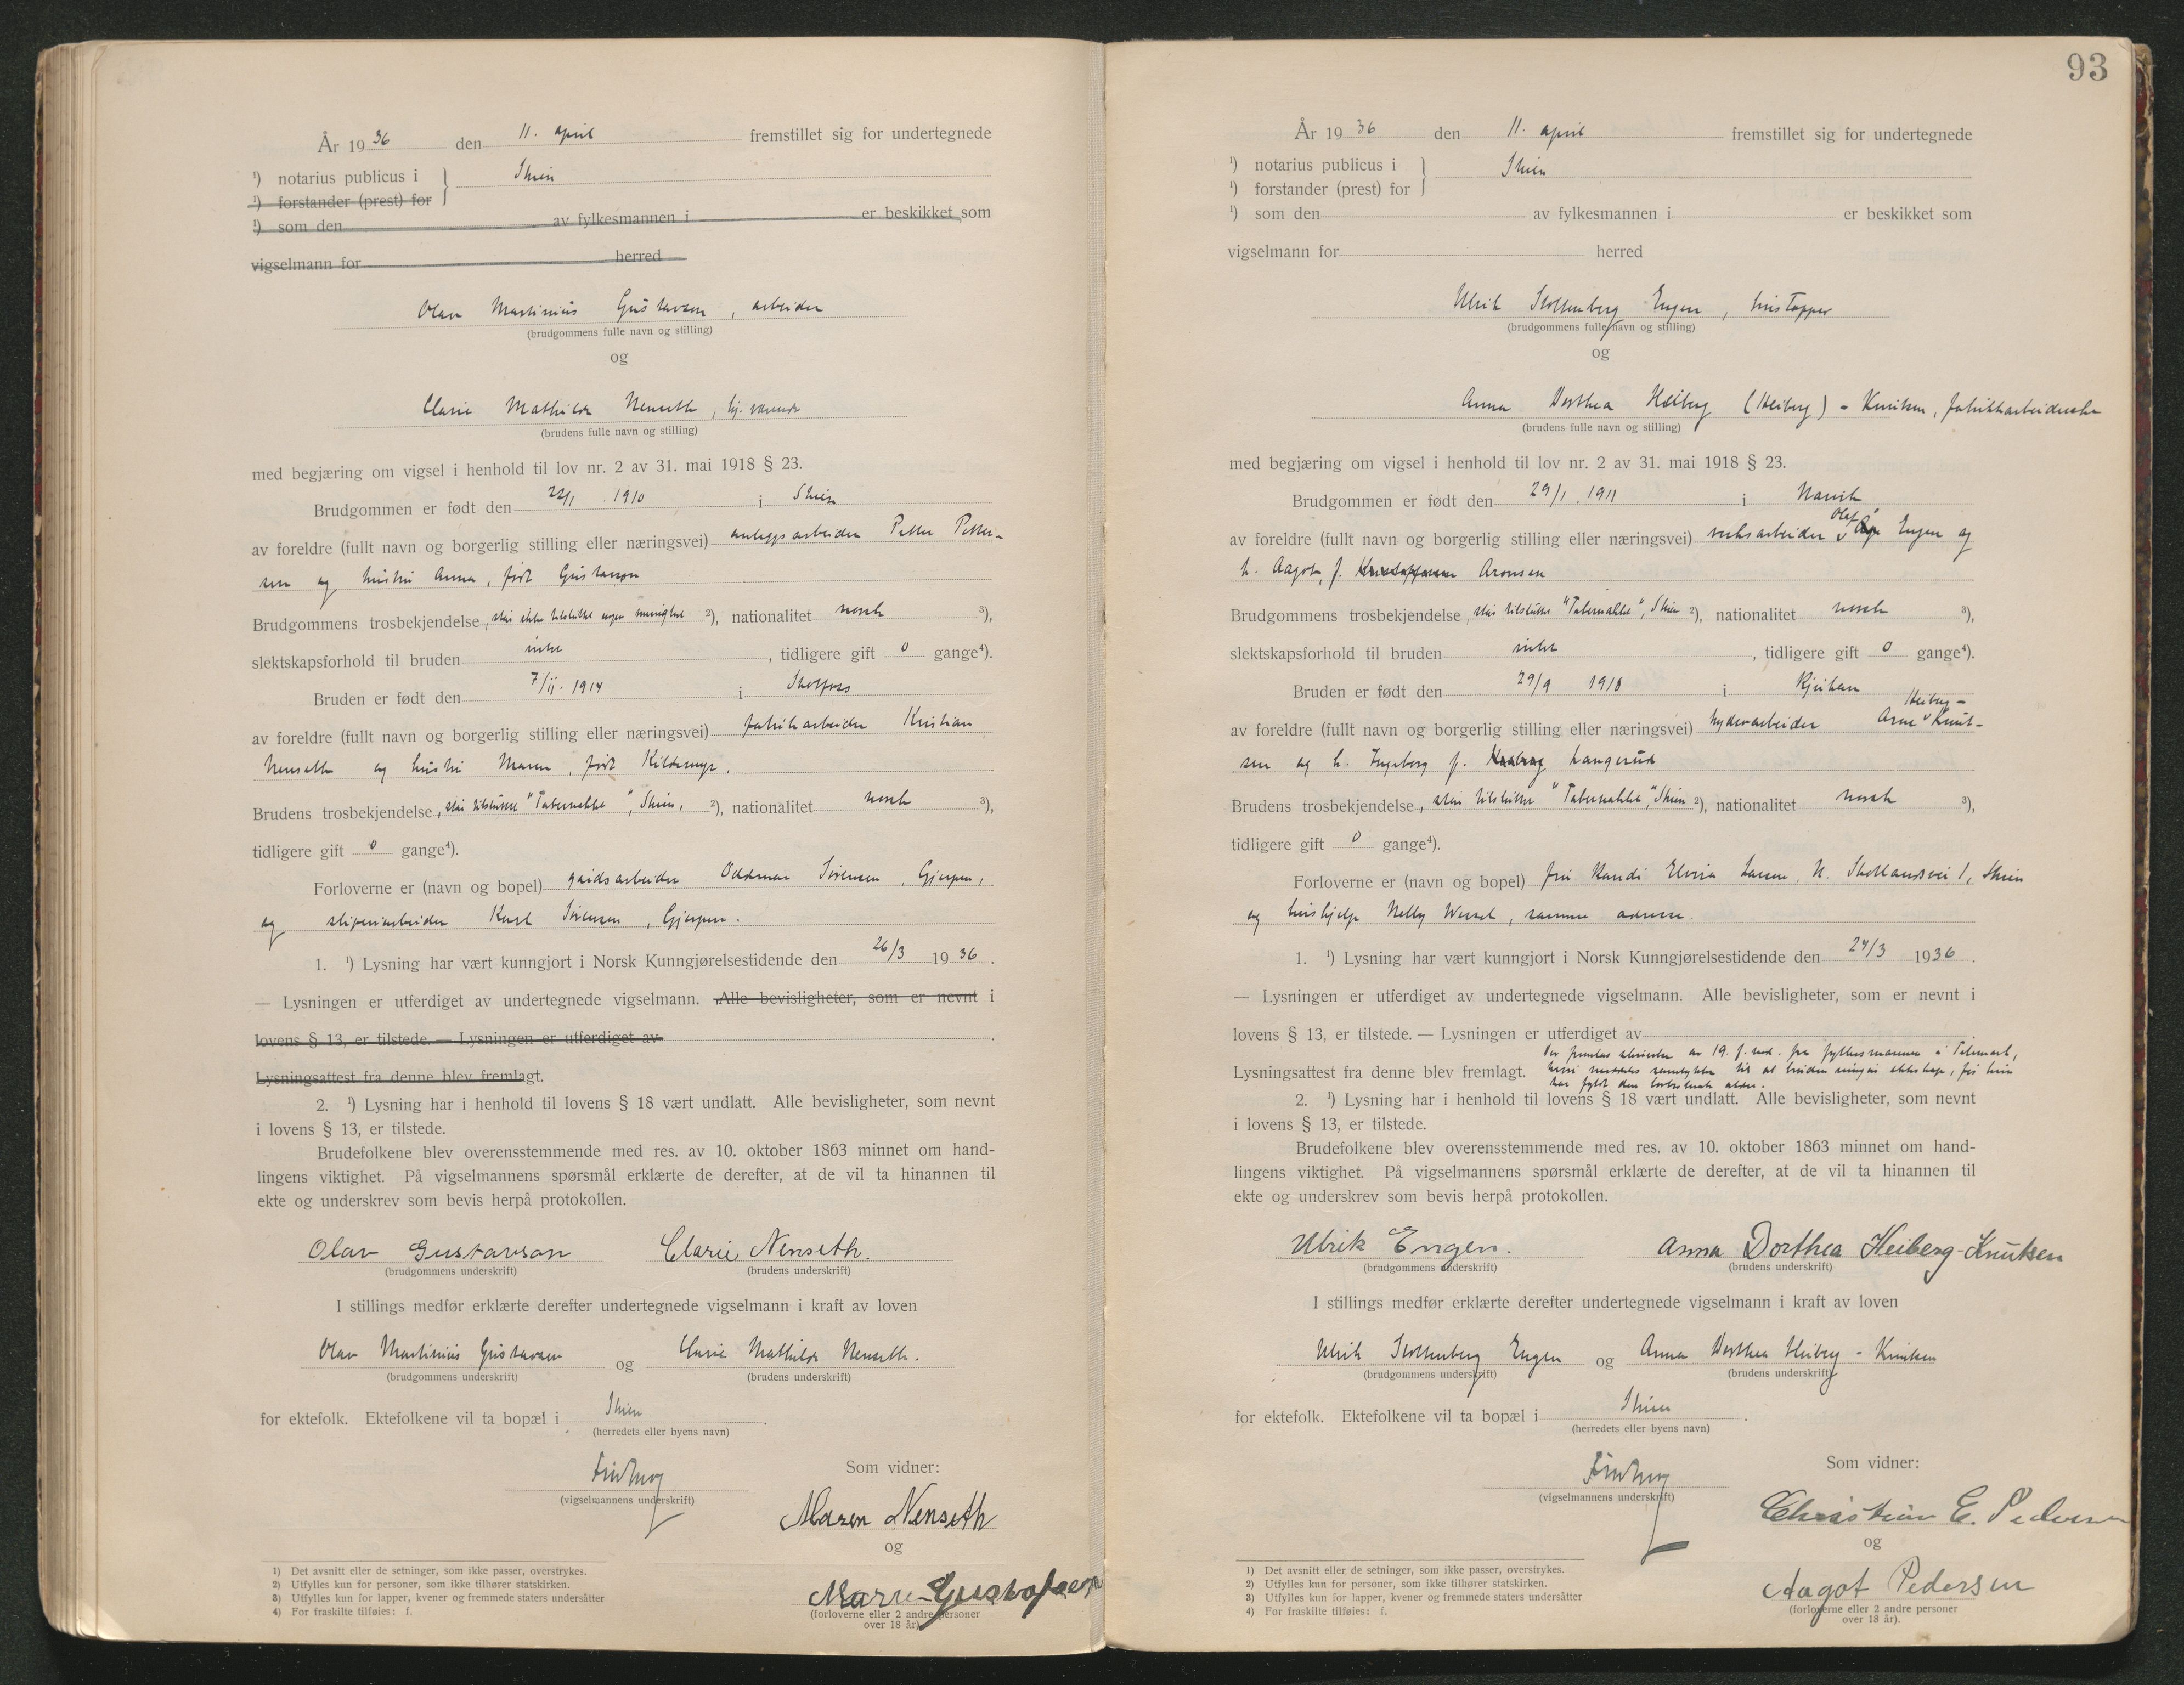 År 19 36 den 11. april fremstillet sig for undertegnede
1) notarius publicus i } Skien
1) forstander (prest) for
1) som den av fylkesmannen i er beskikket som
vigselmann for herred
Olav Martinius Gustavson, arbeider
(brudgommens fulle navn og stilling)
og
Clarie Mathilde Nenseth, hj. værende
(brudens fulle navn og stilling)
med begjæring om vigsel i henhold til lov nr. 2 av 31. mai 1918 § 23.
Brudgommen er født den 22/1 1910 i Skien
av foreldre (fullt navn og borgerlig stilling eller næringsvei) anleggsarbeider Petter Petter-
sen og hustru Anna, født Gustavson
Brudgommens trosbekjendelse, står ikke tilsluttet nogen menighet 2), nationalitet norsk 3),
slektskapsforhold til bruden intet, tidligere gift 0 gange4).
Bruden er født den 7/11. 1914 i Skotfoss
av foreldre (fullt navn og borgerlig stilling eller næringsvei) fabrikarbeider Kristian
Nenseth og hustru Maren, født Kildemyr.
Brudens trosbekjendelse, står tilsluttet "Tabernaklet", Skien, 2), nationalitet norsk 3),
tidligere gift 0 gange4).
Forloverne er (navn og bopel) gårdsarbeider Oddmar Sörensen, Gjerpen,
og sliperiarbeider Karl Sörensen, Gjerpen.
1. 1) Lysning har vært kunngjort i Norsk Kunngjørelsestidende den 26/3 19 36.
— Lysningen er utferdiget av undertegnede vigselmann. Alle bevisligheter, som er nevnt i
lovens § 13, er tilstede. — Lysningen er utferdiget av
Lysningsattest fra denne blev fremlagt.
2. 1) Lysning har i henhold til lovens § 18 vært undlatt. Alle bevisligheter, som nevnt
i lovens § 13, er tilstede.
Brudefolkene blev overensstemmende med res. av 10. oktober 1863 minnet om hand-
lingens viktighet. På vigselmannens spørsmål erklærte de derefter, at de vil ta hinannen til
ekte og underskrev som bevis herpå protokollen.
Olav Gustavson Clarie Nenseth.
(brudgommens underskrift) (brudens underskrift)
I stillings medfør erklærte derefter undertegnede vigselmann i kraft av loven
Olav Martinius Gustavson og Clarie Mathilde Nenseth.
(brudgommens underskrift) (brudens underskrift)
for ektefolk. Ektefolkene vil ta bopæl i Skien.
(herredets eller byens navn)
(vigselmannens underskrift)
Som vidner:
Maren Nenseth
og
Gustafsen
(forloverne eller 2 andre personer
over 18 år).
1) Det avsnitt eller de setninger, som ikke passer, overstrykes.
2) Utfylles kun for personer, som ikke tilhører statskirken.
3) Utfylles kun for lapper, kvener og fremmede staters undersåtter
4) For fraskilte tilføies: f.
93
År 19 36 den 11. april fremstillet sig for undertegnede
1) notarius publicus i } Skien
1) forstander (prest) for
1) som den av fylkesmannen i er beskikket som
vigselmann for herred
Ulrik Stoltenberg Engen, 
(brudgommens fulle navn og stilling)
og
Anna Dorthea Heiberg (Heiberg) - Knutsen, fabrikkarbeiderske
(brudens fulle navn og stilling)
med begjæring om vigsel i henhold til lov nr. 2 av 31. mai 1918 § 23.
Brudgommen er født den 29/1. 1911 i Narvik
av foreldre (fullt navn og borgerlig stilling eller næringsvei) verksarbeider Olaf Engen og
h. Aagot, f. Aronsen
Brudgommens trosbekjendelse, står tilsluttet "Tabernaklet", Skien 2), nationalitet norsk 3),
slektskapsforhold til bruden intet, tidligere gift 0 gange4).
Bruden er født den 29/9 1918 i Rjukan
av foreldre (fullt navn og borgerlig stilling eller næringsvei) hydroarbeider Arne Heiberg-Knut-
sen og h. Ingeborg f. Langerud
Brudens trosbekjendelse, står tilsluttet "Tabernaklet", Skien 2), nationalitet norsk 3),
tidligere gift 0 gange4).
Forloverne er (navn og bopel) fru Randi Elvira Larsen, N. Skotlandsvei 1, Skien
og hushjelp Nelly samme adresse.
1. 1) Lysning har vært kunngjort i Norsk Kunngjørelsestidende den 24/3 1936.
— Lysningen er utferdiget av undertegnede vigselmann. Alle bevisligheter, som er nevnt i
lovens § 13, er tilstede. — Lysningen er utferdiget av
Lysningsattest fra denne blev fremlagt. Der fremlas skrivelse av 19. f. md. fra fylkesmannen i Telemark,
hvori meddeles samtykke til at bruden inngår ekteskap, før hun
har fylt den lovbestemte alder.
2. 1) Lysning har i henhold til lovens § 18 vært undlatt. Alle bevisligheter, som nevnt
i lovens § 13, er tilstede.
Brudefolkene blev overensstemmende med res. av 10. oktober 1863 minnet om hand-
lingens viktighet. På vigselmannens spørsmål erklærte de derefter, at de vil ta hinannen til
ekte og underskrev som bevis herpå protokollen.
Ulrik Engen. Anna Dorthea Heiberg-Knutsen
(brudgommens underskrift) (brudens underskrift)
I stillings medfør erklærte derefter undertegnede vigselmann i kraft av loven
Ulrik Stoltenberg Engen og Anna Dorthea Heiberg - Knutsen
(brudgommens underskrift) (brudens underskrift)
for ektefolk. Ektefolkene vil ta bopæl i Skien.
(herredets eller byens navn)
(vigselmannens underskrift)
Som vidner:
Christian E. Pedersen
og
Aagot Pedersen
(forloverne eller 2 andre personer
over 18 år).
1) Det avsnitt eller de setninger, som ikke passer, overstrykes.
2) Utfylles kun for personer, som ikke tilhører statskirken.
3) Utfylles kun for lapper, kvener og fremmede staters undersåtter
4) For fraskilte tilføies: f.